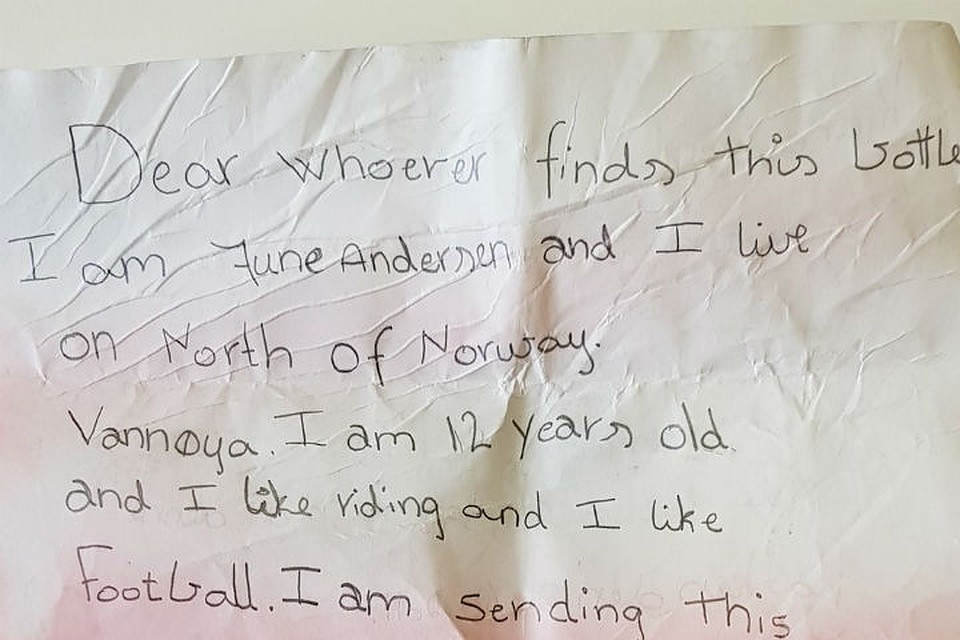 Dear whoever finds this bottle
I am June Andersen and I live
on North of Norway.
Vannøya. I am 12 years old.
and I like riding and I like
Football. I am sending this